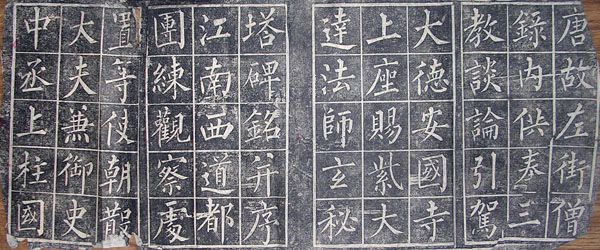 唐故左街僧
錄內供奉三
教談論引駕
大德安國寺
上座賜紫大
達法師玄秘
塔碑銘并序
江南西道都
團練觀察處
置等使朝散
大夫兼御史
中丞上柱國